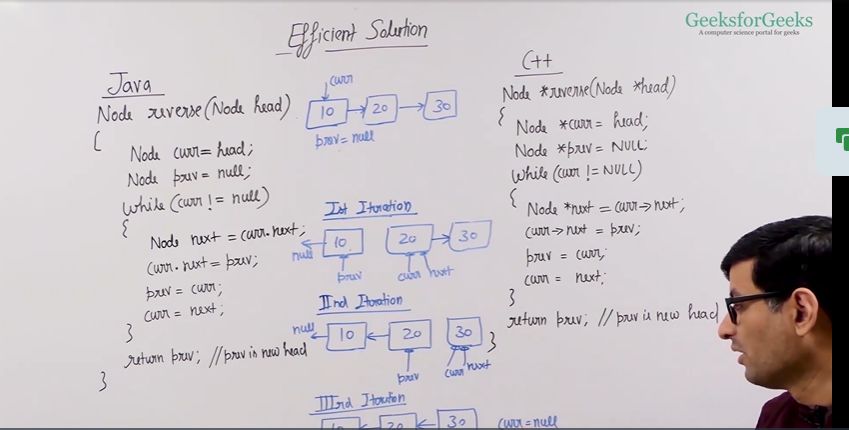 GeeksforGeeks
A computer science portal for geeks
Efficient Solution
Java
Node reverse(Node head)
{
Node curr = head;
Node prev = null;
while (curr != null)
{
Node next = curr.next;
curr.next = prev;
prev = curr;
curr = next;
}
return prev; //prev is new head
}
curr
10 20 30
prev = null
Ist Iteration
null 10 20 30
prev curr next
IInd Iteration
null 10 20 30
prev curr next
IIIrd Iteration
10 20 30 curr = null
C++
Node *reverse(Node *head)
{
Node *curr = head;
Node *prev = NULL;
while (curr != NULL)
{
Node *next = curr→next;
curr→next = prev;
prev = curr;
curr = next;
}
return prev; //prev is new head
}